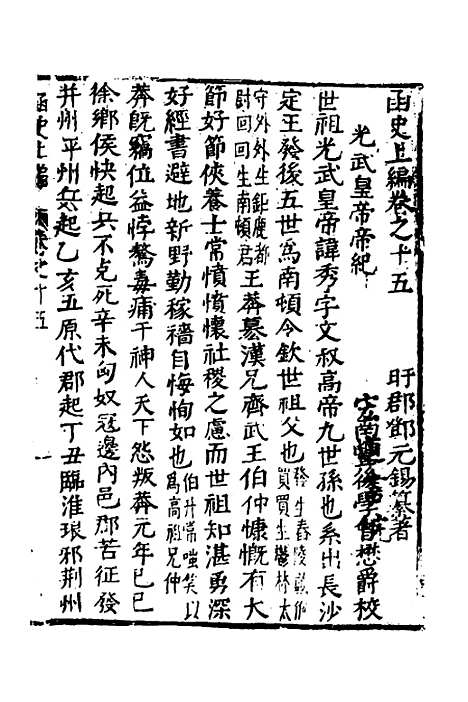 函史上編卷之十五
盱郡鄧元錫纂著
後學曾懋爵校
光武皇帝帝紀
世祖光武皇帝諱秀字文叔高帝九世孫也系出長沙
定王發後五世爲南頓令欽世祖父也發生舂陵
買買生鬱林太
守外外生鉅鹿都
尉回回生南頓君王莽簒漢兄齊武王伯仲慷慨有大
節好節俠養士常憤憤懷社稷之慮而世祖知湛勇深
好經書避地新野勤稼穡自悔恂如也伯升常嗤笑以
爲高祖兄仲
莽旣竊位益悖驁毒痡于神人天下怨叛莽元年己巳
徐鄉侯快起兵不克死辛未匈奴寇邊內邑郡苦征發
并州平州兵起乙亥五原代郡起丁丑臨淮琅邪荆州
函史上編
卷之十五
一